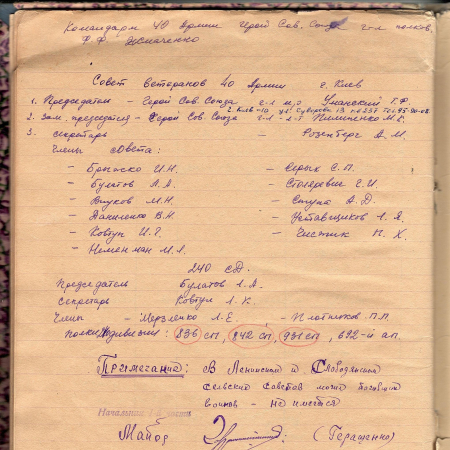 Командарм 40 Армии Герой Сов. Союза г-л полков.
Ф.Ф. Жмаченко
Совет ветеранов 40 Армии г. Киев
1. Председатель – Герой Сов. Союза г-л м-р Уманский Т.Ф.
г. Киев-10 ул. Суворова 13 кв 237 тел. 95-90-02
2. Зам. председателя – Герой Сов. Союза г-л л-т Пилипенко М.К.
3. секретарь – Розенберг А.М.
Члены совета:
– Брыжко И.Н. – Серых С.П.
– Булатов А.А. – Столяревич Е.И.
– Внуков М.Н. – Ступа А.Д.
– Даниленко В.Н. – Уставщиков Л.Я.
– Ковтун И.Г. – Чистик П.Х.
– Неменман М.Л.
240 сд.
Председатель Булатов А.А.
Секретарь Ковтун Л.К.
Члены – Мерзленко Л.Е. – Плотников П.П.
Полки дивизии: 836 сп, 842 сп, 931 сп, 692-й ап.
Примечание: В Ленинском и Слободянском
сельских советов могил погибших
воинов – не имеется
Начальник части
Майор (Геращенко)